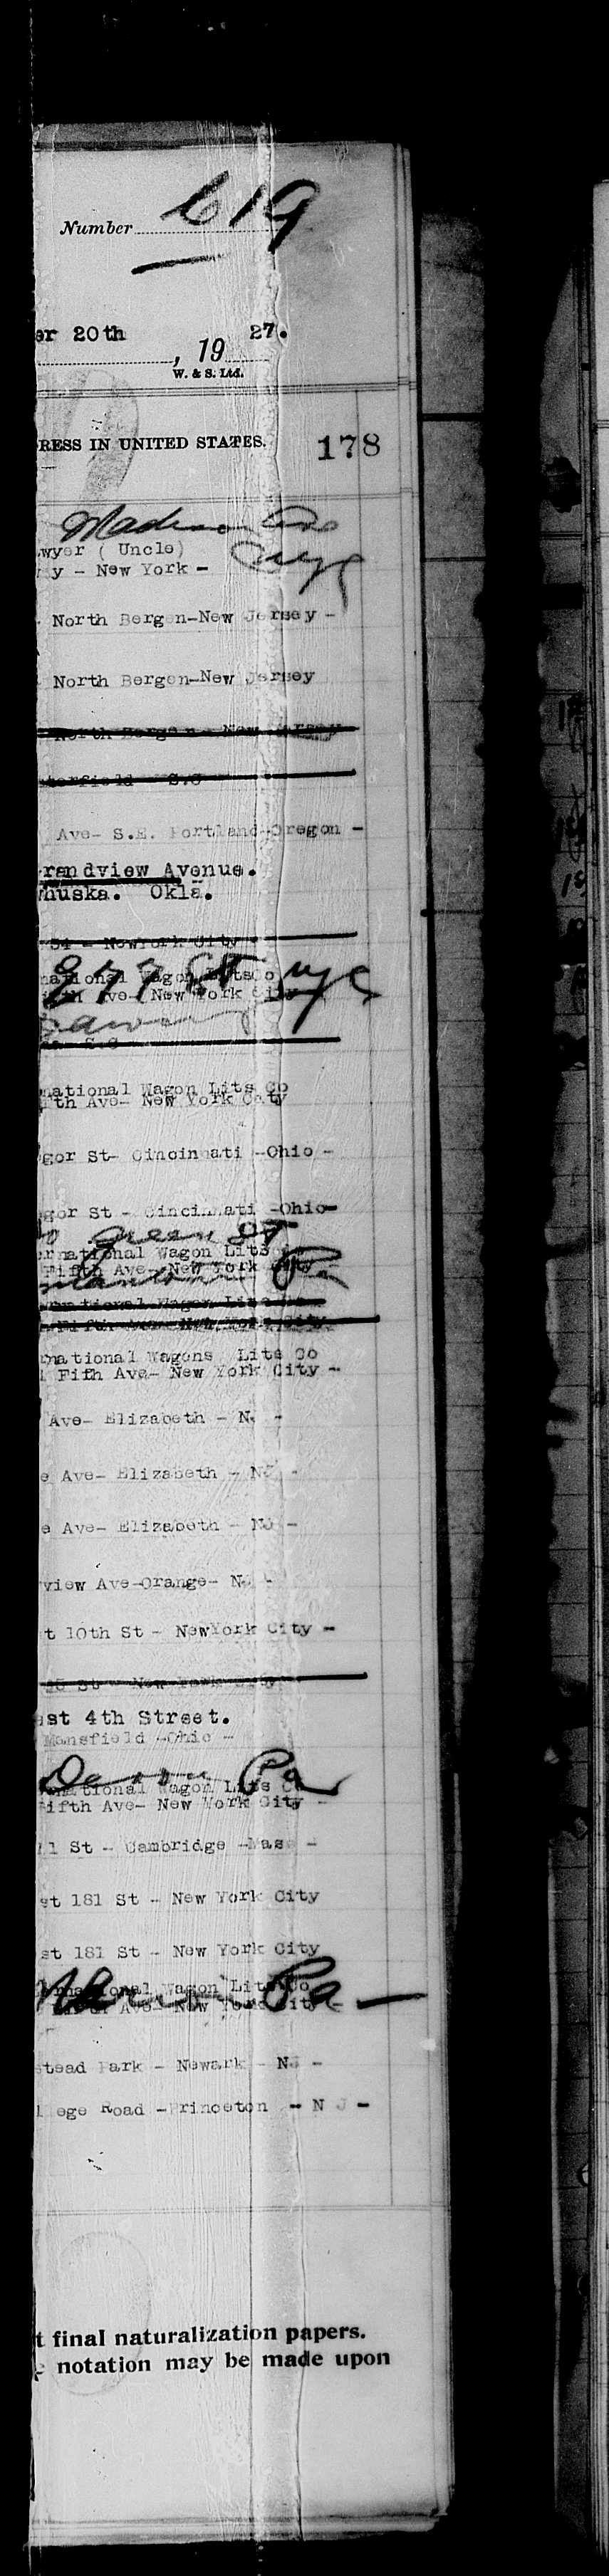 Number 619
er 20th , 19 27.
W. & S. Ltd.
RESS IN UNITED STATES. 178
Madison Ave
wyer ( Uncle) NYC
y - New York -
North Bergen-New Jersey -
North Bergen-New Jersey
North Bergen - New Jersey
terfield S.C
Ave- S.E. Portland-Oregon -
randview Avenue.
huska. Okla.
St - NewYork City
national Wagon Lits Co
Ave- New York City
S.C
national Wagon Lits Co
fth Ave- New York City
gor St- Cincinnati -Ohio -
gor St - Cincinnati -Ohio-
Green St
ernational Wagon Lits
Fifth Ave- New York City
Pa
national Wagon Lits
Fifth Ave- New York City
rnational Wagons Lits Co
1 Fifh Ave- New York City -
Ave- Elizabeth - NJ -
e Ave- Elizabeth - NJ -
e Ave- Elizabeth - NJ -
view Ave-Orange- NJ -
t 10th St - NewYork City -
St - New York City
ast 4th Street.
Mansfield -Ohio -
Devon Pa
national Wagon Lits Co
Fifth Ave- New York City -
1 St - Cambridge -Mass -
st 181 St - New York City
st 181 St - New York City
rnational Wagon Lits Co
Pa -
Ave- New York City -
stead Park - Newark - NJ -
lege Road -Princeton - N J -
t final naturalization papers.
notation may be made upon